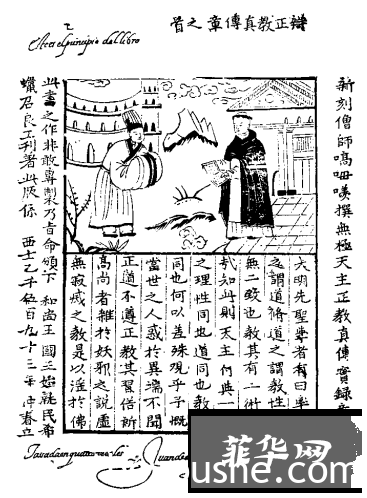 辯正教真傳章之首
principio del libro
新刻僧師嗃呣羨撰無極天主正教真傳實錄
大明先聖學者有曰率
之謂道脩道之謂教性
無二致也教其有二術
哉知此則天主何與一
之理性同也道同也教
同也何以差殊現乎予慨
當世之人惑於異端不聞
正道不遵正教其習俗所
高尚者雜於妖邪之說虛
無寂戚之教是以淫於佛
此書之作非敢專製乃旨命頒下和尚王國王始就民希
蠟召良工刊著此版係西士乙千伍百九十三年仲春立
Tasada en quatro reales
Juan de
菲华网
ushe.com